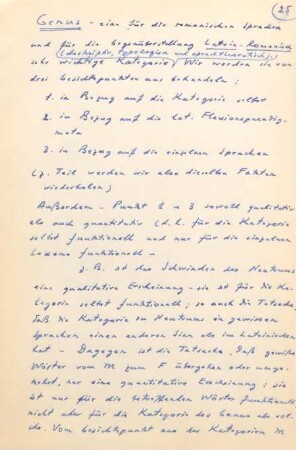 25
Genus - eine für die romanischen Sprachen
und für die Gegenüberstellung Latein-Romanisch
(deskriptiv, typologisch und sprachtheoretisch)
sehr wichtige Kategorie. Wir werden sie von
drei Gesichtspunkten aus behandeln:
1. in Bezug auf die Kategorie selbst
2. in Bezug auf die lat. Flexionsparadig-
mata
3. in Bezug auf die einzelnen Sprachen
(z. Teil werden wir also dieselben Fakten
wiederholen)
Außerdem - Punkt 2 u 3 sowohl qualitativ
als auch quantitativ (d.h. für die Kategorie
selbst funktionell und nur für die einzelnen
Lexeme funktionell -
z.B. ist das Schwinden des Neutrums
eine qualitative Erscheinung - sie ist für die Ka-
tegorie selbst funktionell; so auch die Tatsache,
daß die Kategorie des Neutrums in gewissen
Sprachen einen anderen Sinn als im Lateinischen
hat - Dagegen ist die Tatsache, daß gewisse
Wörter vom M zum F übergehen oder umge-
kehrt, nur eine quantitative Erscheinung: sie
ist nur für die betreffenden Wörter funktionell
nicht aber für die Kategorie des Genus als sol-
che. Vom Gesichtspunkt der Kategorien M